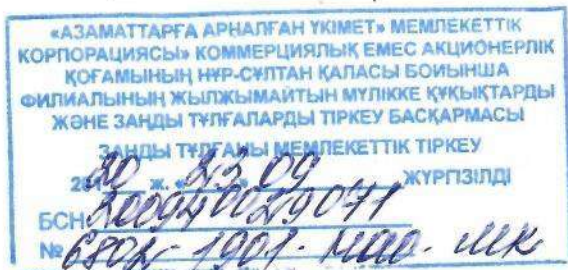 «АЗАМАТТАРҒА АРНАЛҒАН ҮКІМЕТ» МЕМЛЕКЕТТІК
КОРПОРАЦИЯСЫ» КОММЕРЦИЯЛЫҚ ЕМЕС АКЦИОНЕРЛІК
ҚОҒАМЫНЫҢ НҰР-СҰЛТАН ҚАЛАСЫ БОЙЫНША
ФИЛИАЛЫНЫҢ ЖЫЛЖЫМАЙТЫН МҮЛІККЕ ҚҰҚЫҚТАРДЫ
ЖӘНЕ ЗАҢДЫ ТҰЛҒАЛАРДЫ ТІРКЕУ БАСҚАРМАСЫ
ЗАҢДЫ ТҰЛҒАНЫ МЕМЛЕКЕТТІК ТІРКЕУ
2020 ж. «23» 09 ЖҮРГІЗІЛДІ
БСН 200940029071
№ 6802-1901-